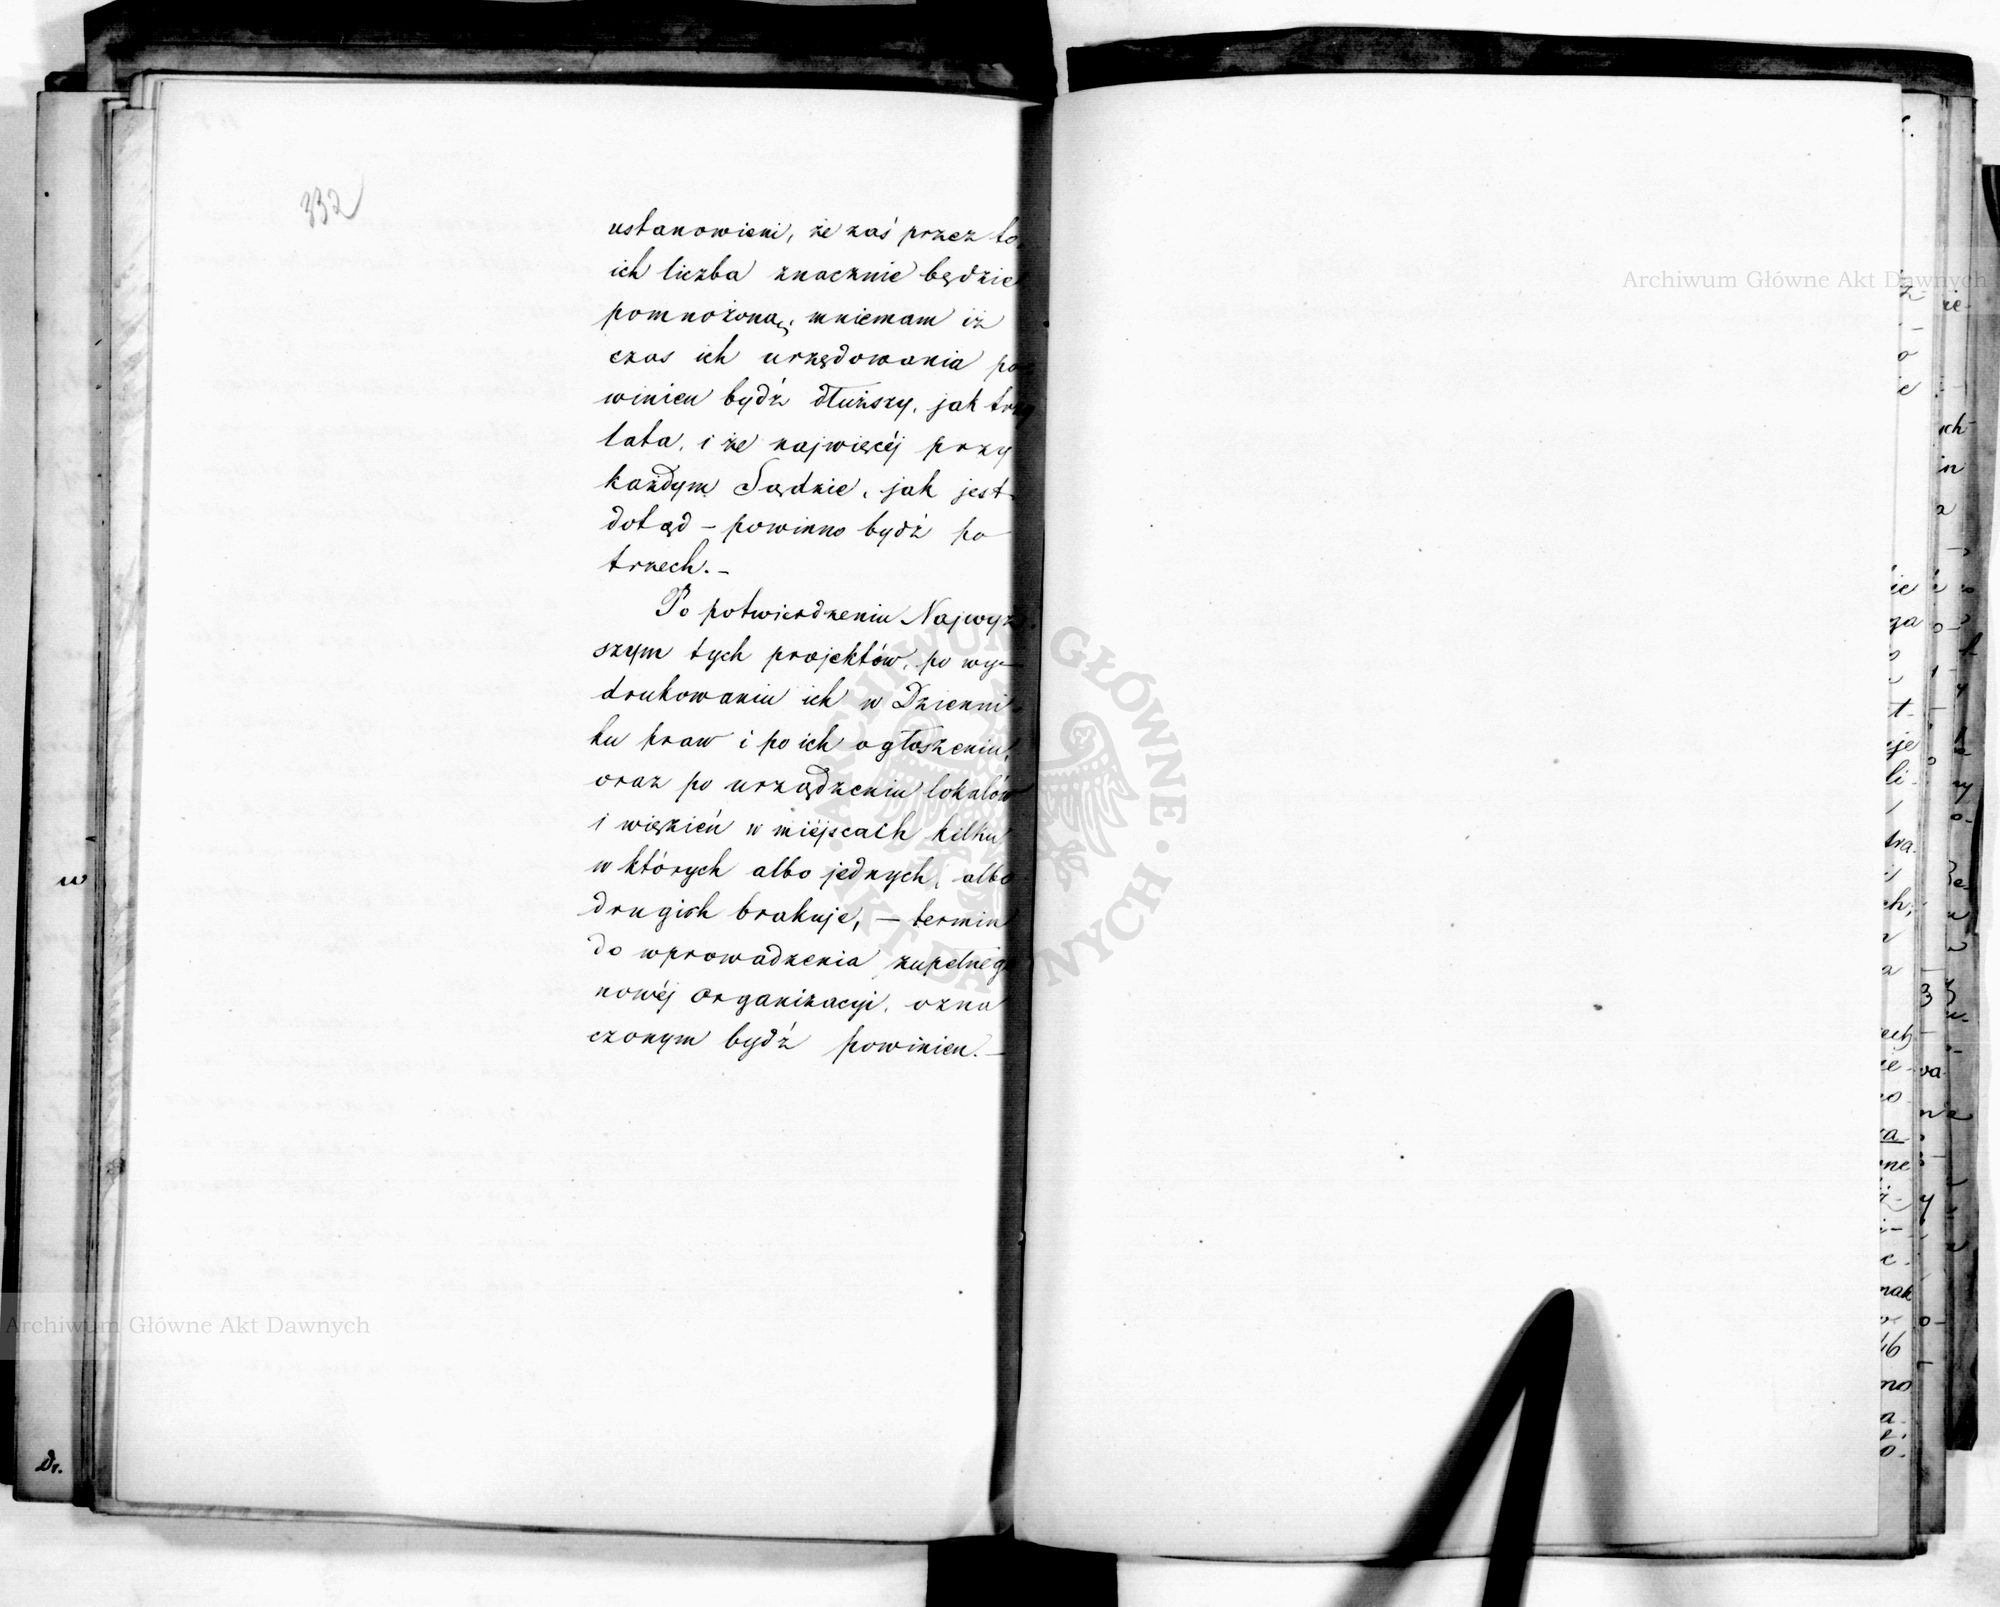 332
ustanowieni, że zaś przez to
ich liczba znacznie będzie
pomnożoną, mniemam iż
czas ich urzędowania po
winien bydź dłuższy, jak trzy
lata, i że najwięcéj przy
każdym Sądzie, jak jest
dotąd – powinno bydź po
trzech. –
Po potwierdzeniu Najwyż
szym tych projektów, po wy-
drukowaniu ich w Dzienni-
ku praw i po ich ogłoszeniu,
oraz po urządzeniu lokalów
i więzień w miéjscach kilku
w których albo jednych, albo
drugich brakuje, – termin
do wprowadzenia zupełnego
nowéj organizacyi, ozna
czonym bydź powinien. –
Archiwum Główne Akt Dawnych
Archiwum Główne Akt Dawnych
ARCHIWUM GŁÓWNE · AKT DAWNYCH ·